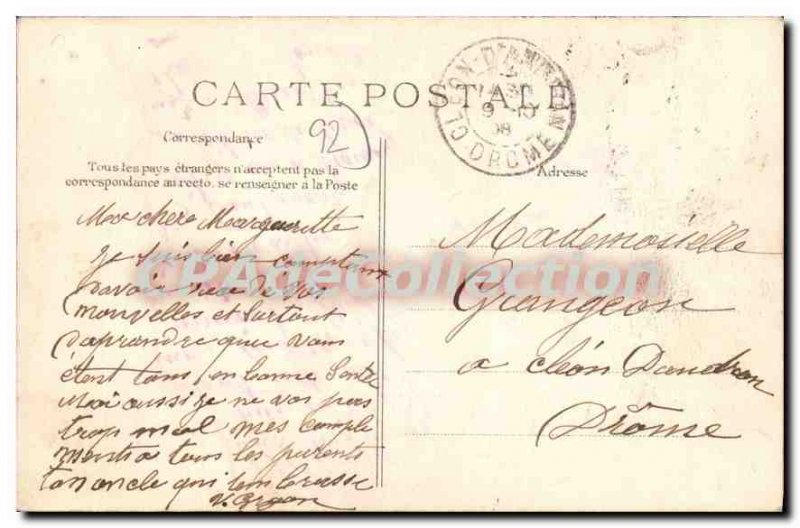 CARTE POSTALE
92
Correspondance
Adresse
Tous les pays étrangers n'acceptent pas la
correspondance au recto, se renseigner à la Poste
CLEON-D'ANDRAN
9 - 10
08
DROME
Ma chere Marguerite
Je suis bien contentaux
davoir reçu de vos
nouvelles et surtout
d'aprandre que vous
étent tous en bonne Santé
Moi aussi je ne vas pas
trop mal mes comple
ments a tous les parents
ton oncle qui tembrasse
Mademoiselle
Grangeon
a cléon Dandran
Drôme
CPAdeCollection